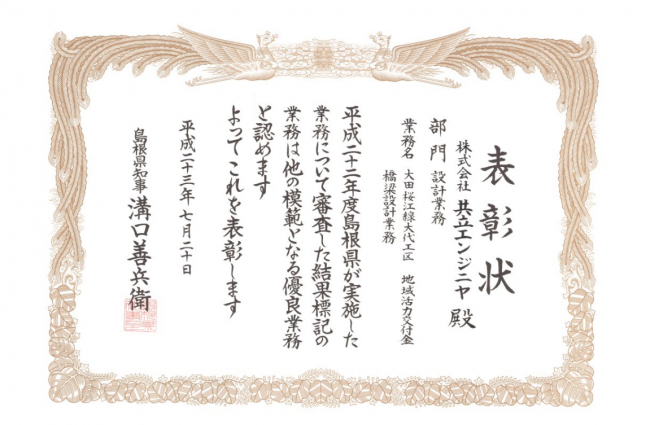 表彰状
株式会社 共立エンジニヤ 殿
部門 設計業務
業務名 大田桜江線大代工区 地域活力交付金
橋梁設計業務
平成二十二年度島根県が実施した
業務について審査した結果標記の
業務は他の模範となる優良業務
と認めます
よってこれを表彰します
平成二十三年七月二十日
島根県知事 溝口善兵衛